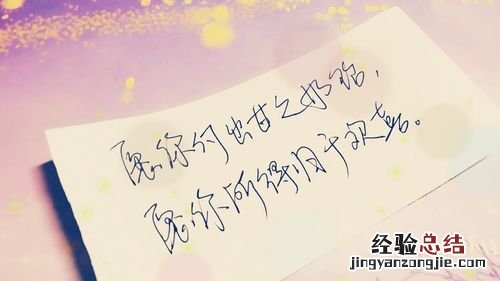 愿你付出甘之如饴，
愿你所得归于欢喜。
经验总结
jingyanzongjie.com